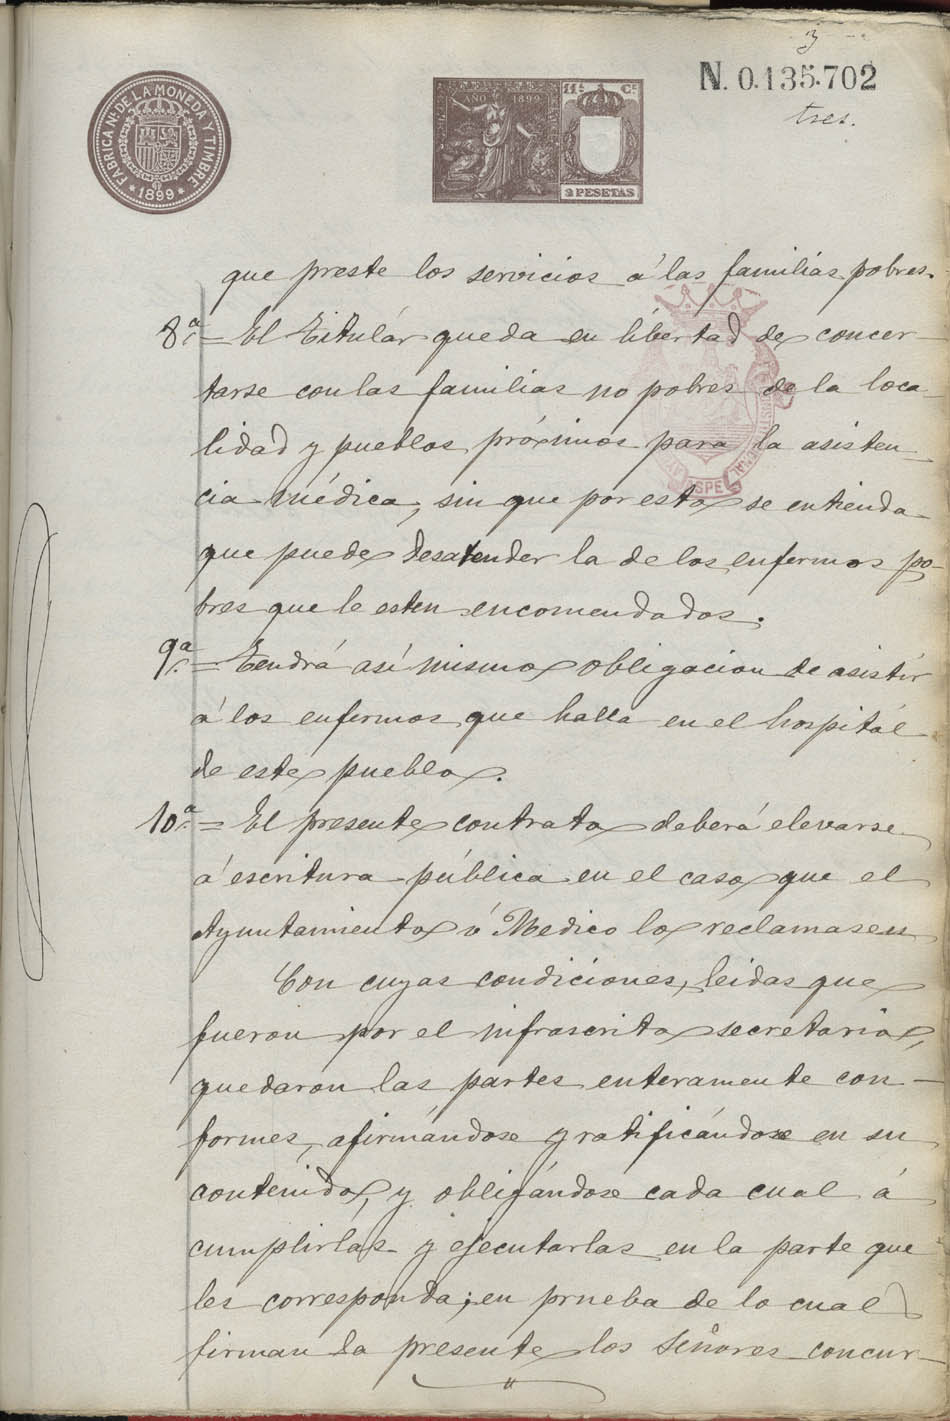 3
N. 0.135.702
tres.
FABRICA NL. DE LA MONEDA Y TIMBRE
* 1899 *
AÑO 1899
11ª Cª
2 PESETAS
que preste los servicios á las familias pobres.
8ª = El Titulár queda en libertad de concer-
tarse con las familias no pobres de la loca
lidad y pueblos próximos para la asisten-
cia médica, sin que por esto se entienda
que puede desatender la de los enfermos po-
bres que le esten encomendados.
9ª = Tendrá así mismo obligacion de asistir
á los enfermos que halla en el hospitál
de este pueblo.
10ª = El presente contrato deberá elevarse
á escritura pública en el caso que el
Ayuntamiento ó Medico lo reclamasen
Con cuyas condiciones, leidas que
fueron por el infrascrito secretario,
quedaron las partes enteramente con-
formes, afirmándose y ratificándose en su
contenido, y obligándose cada cual á
cumplirlas y ejecutarlas en la parte que
les corresponda; en prueba de lo cual
firman la presente los Señores concur-